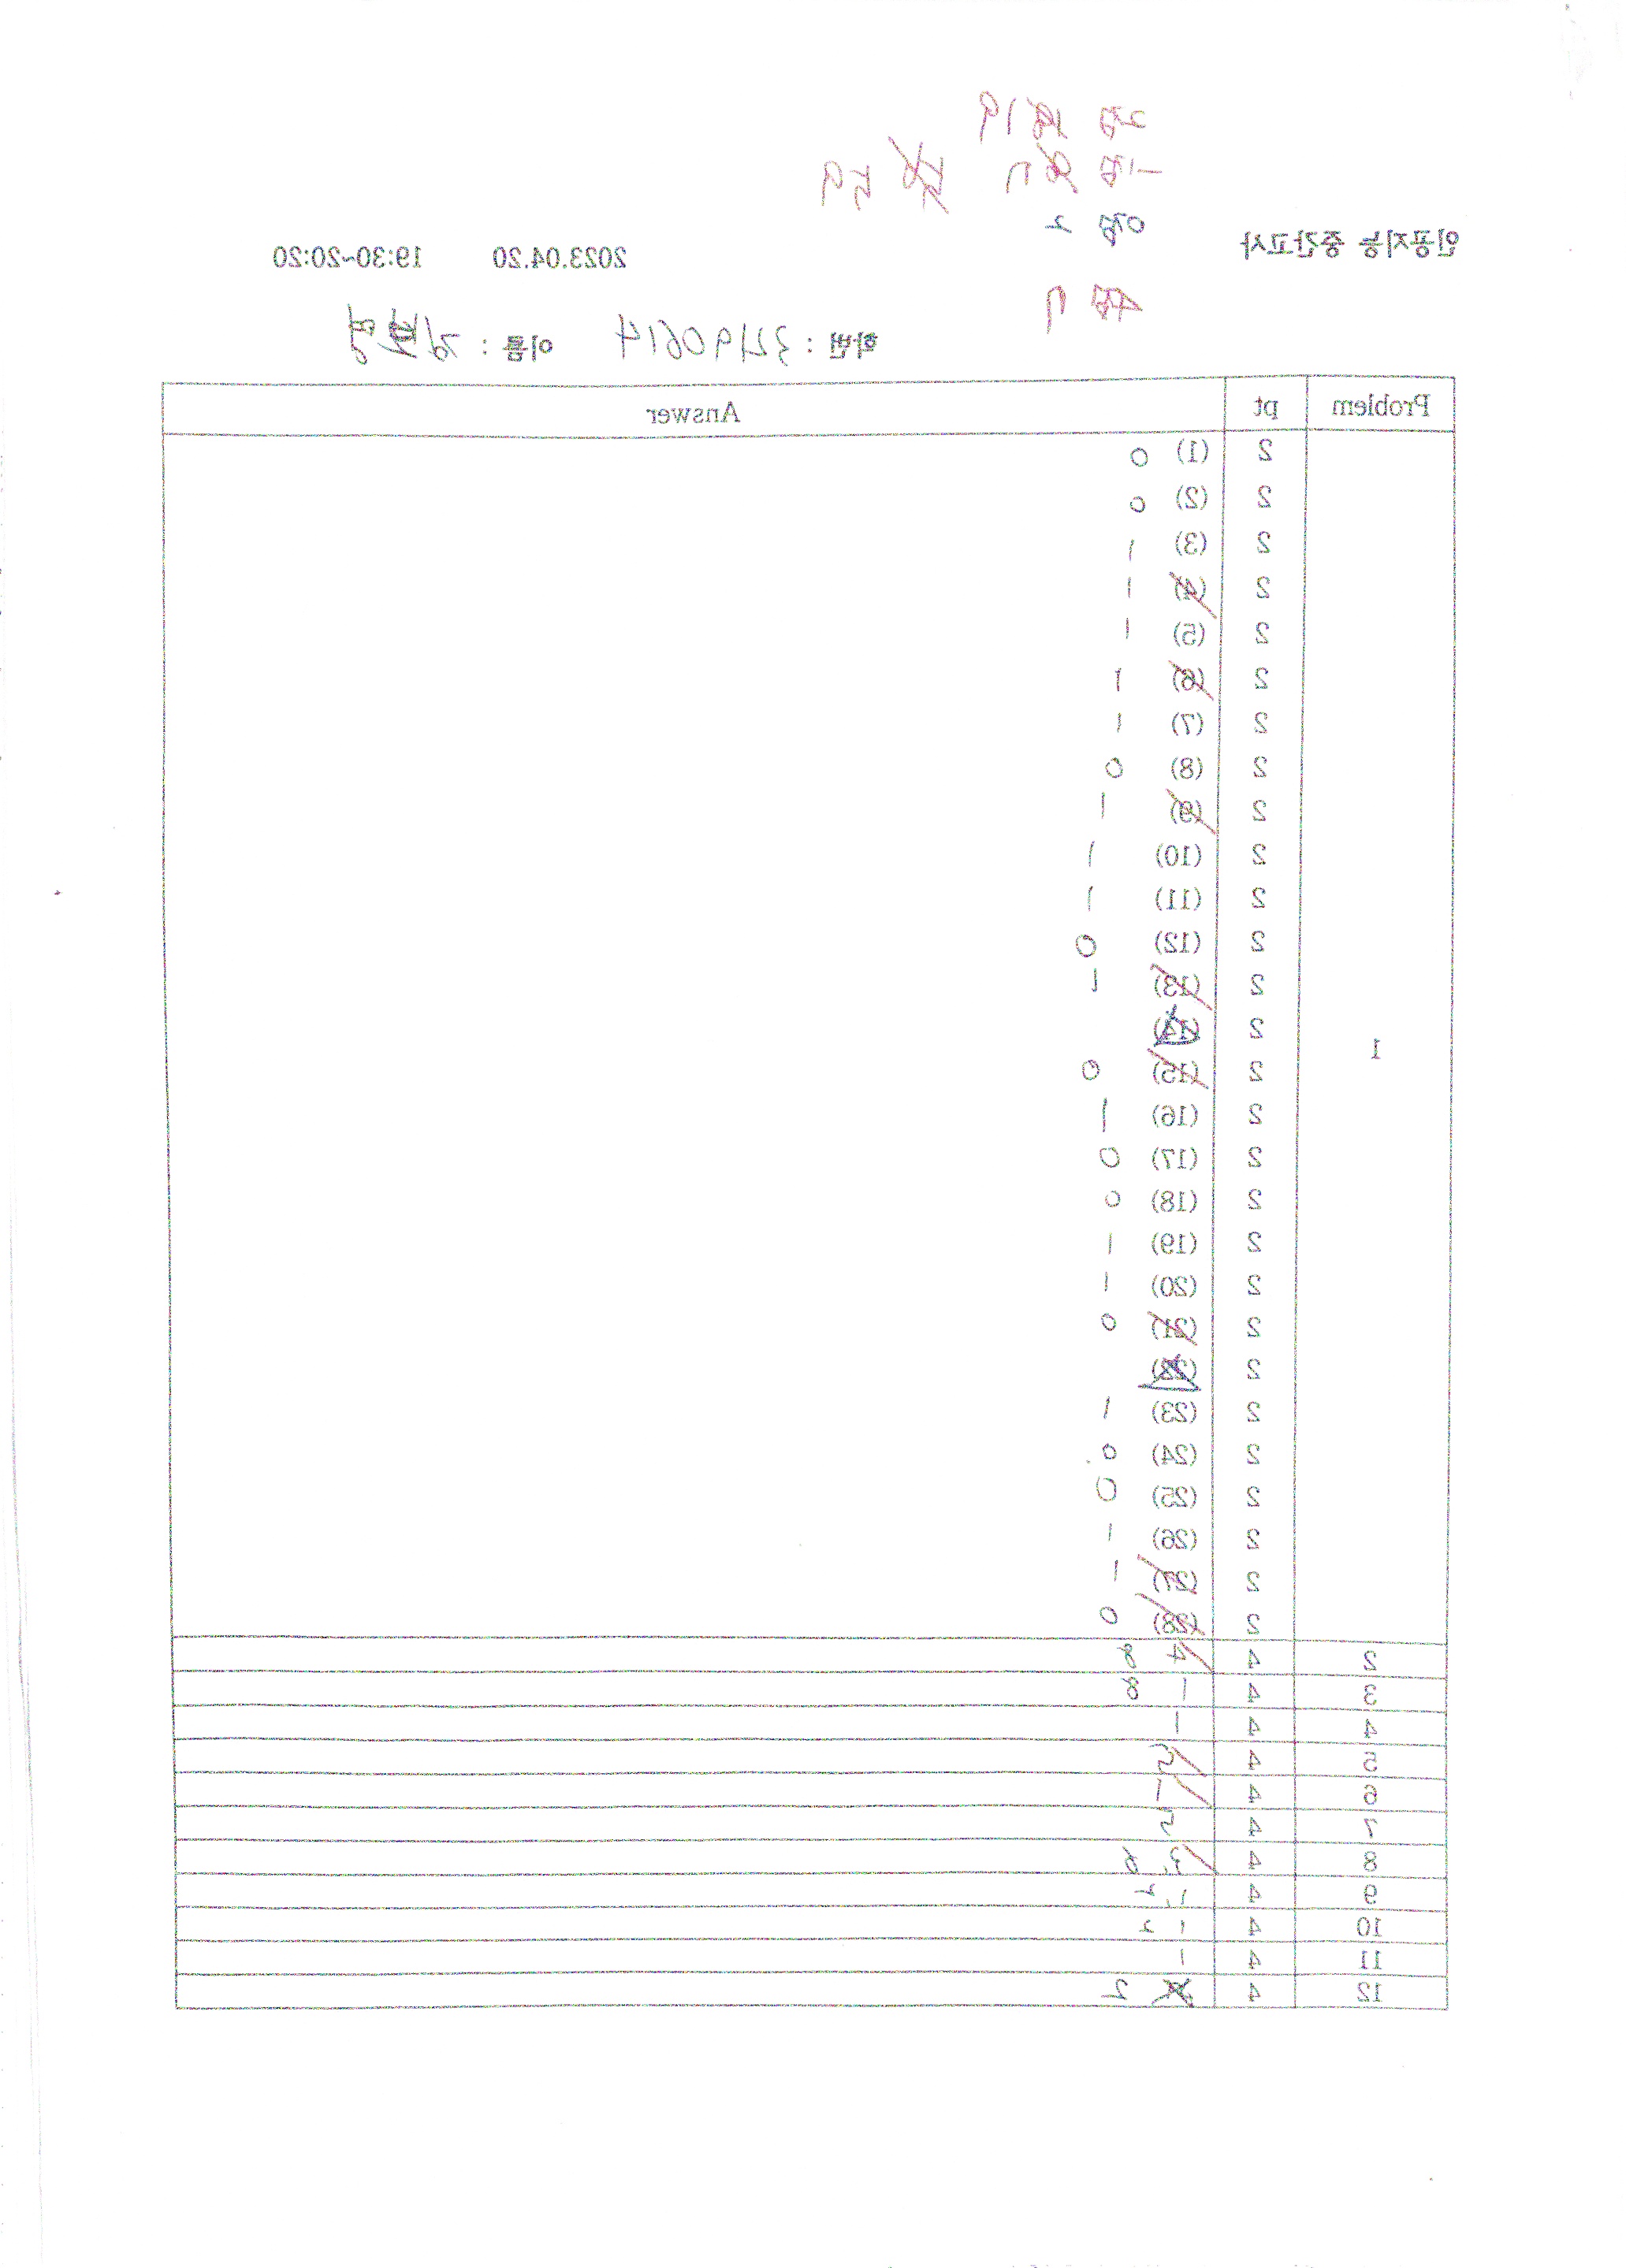 2점 19
-1점 7 59
0점 2
4점 7
인공지능 중간고사 2023.04.20 19:30~20:20
학번 : 32190614 이름 :
Problem pt Answer
1
2 (1) 0
2 (2) 0
2 (3) 1
2 (4) 1
2 (5) 1
2 (6) 1
2 (7) 1
2 (8) 0
2 (9) 1
2 (10) 1
2 (11) 1
2 (12) 0
2 (13) 1
2 (14)
2 (15) 0
2 (16) 1
2 (17) 0
2 (18) 0
2 (19) 1
2 (20) 1
2 (21) 0
2 (22)
2 (23) 1
2 (24) 0
2 (25) 0
2 (26) 1
2 (27) 1
2 (28) 0
2 4 4 8
3 4 1 8
4 4 1
5 4 5
6 4 1
7 4 5
8 4 3, 6
9 4 1, 2
10 4 1 2
11 4 1
12 4 2